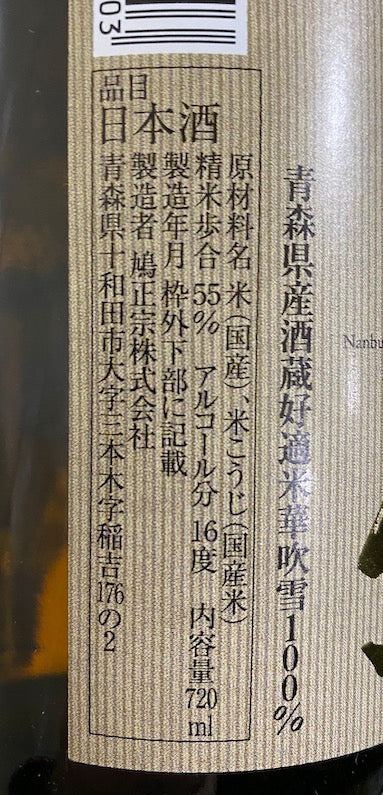 03
青森県産酒蔵好適米華吹雪100%
品目
日本酒
原材料名 米(国産)、米こうじ(国産米)
精米歩合 55% アルコール分 16度 内容量 720ml
製造年月 枠外下部に記載
製造者 鳩正宗株式会社
青森県十和田市大字三本木字稲吉176の2
Nanbu